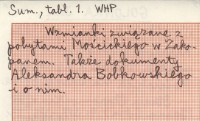 Sum., tabl. 1. WHP
Wzmianki związane z
pobytami Mościckiego w Zako-
panem. Także dokumenty
Aleksandra Bobkowskiego
i o nim.